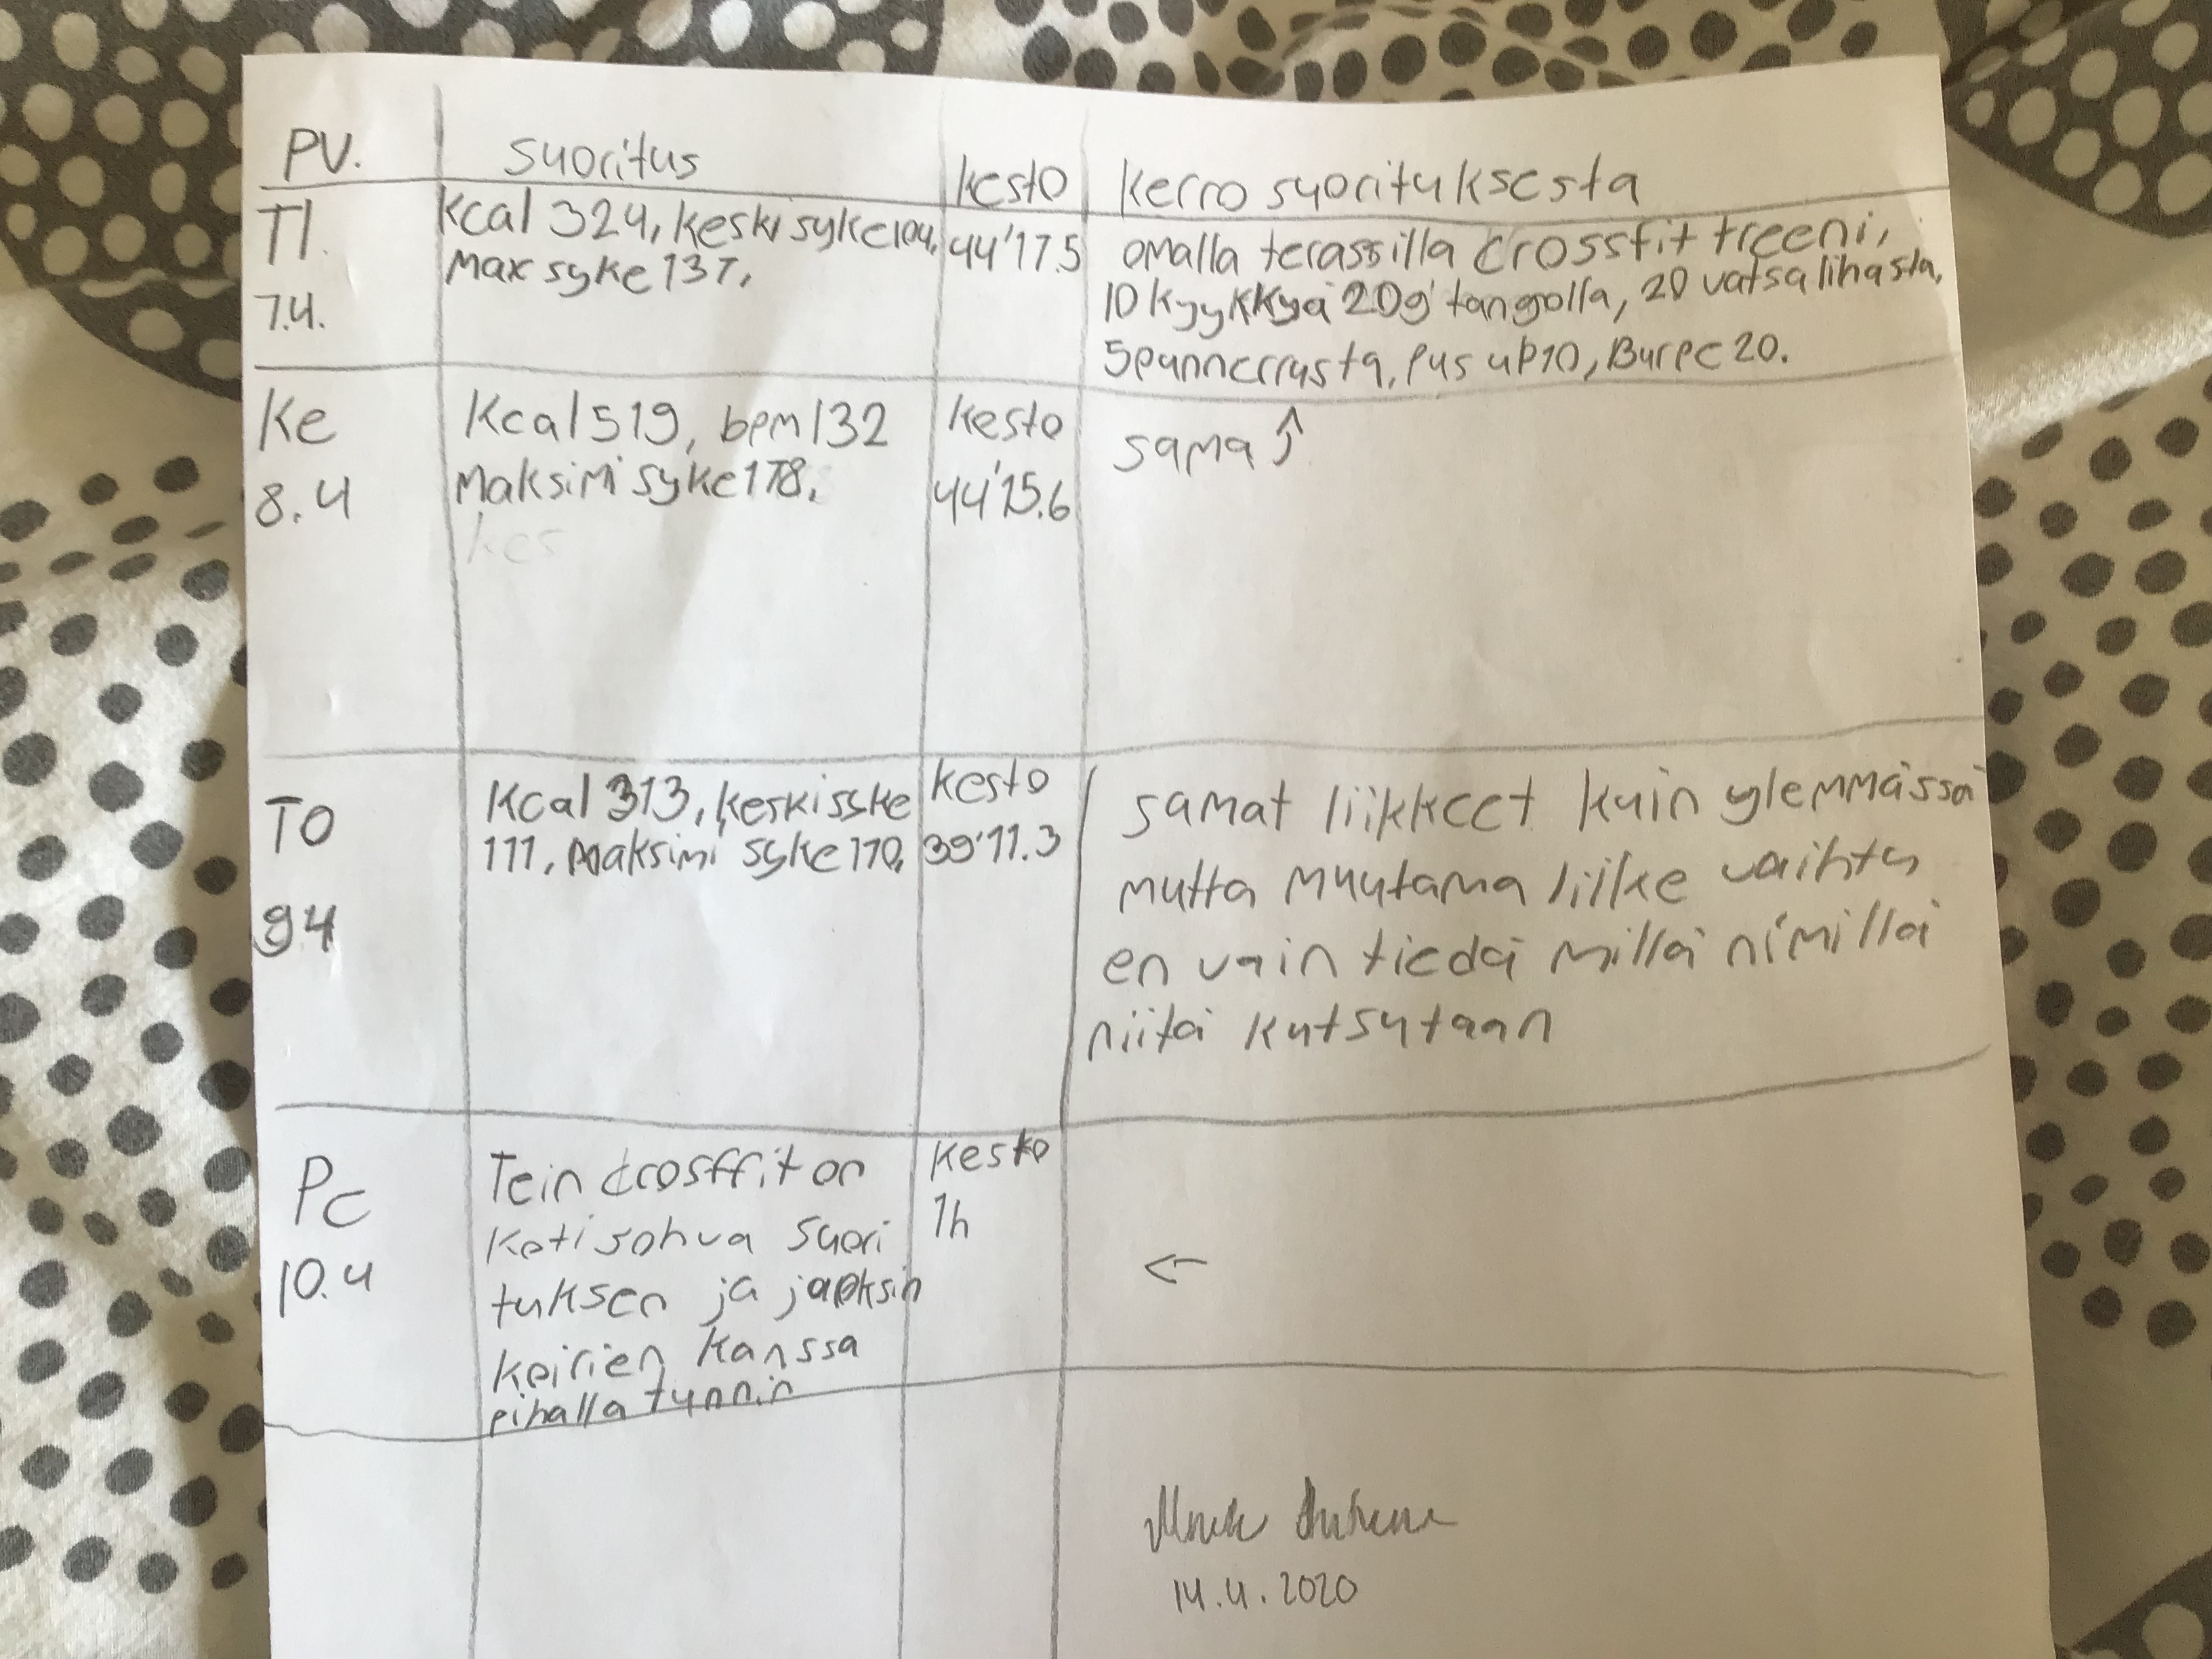 PV.
suoritus
kesto
kerro suorituksesta
TI.
7.4.
kcal 324, keski syke104,
Max syke 137,
44'17.5
omalla terassilla crossfit treeni,
10 kyykkyä 20g tangolla, 20 vatsalihasta,
5punnerrusta, Pus up10, Burpe 20.
Ke
8.4
Kcal 519, bpm 132
Maksimi syke 178,
kes
kesto
44'15.6
sama
TO
9.4
Kcal 313, keskisyke
111, Maksimi syke 170,
kesto
39'11.3
samat liikkeet kuin ylemmässä
mutta muutama liike vaihtu
en vain tiedä millä nimillä
niitä kutsutaan
Pe
10.4
Tein crosffiton
kotisohva suori
tuksen ja juoksin
koirien kanssa
pihalla tunnin
kesto
1h
←
14.4.2020